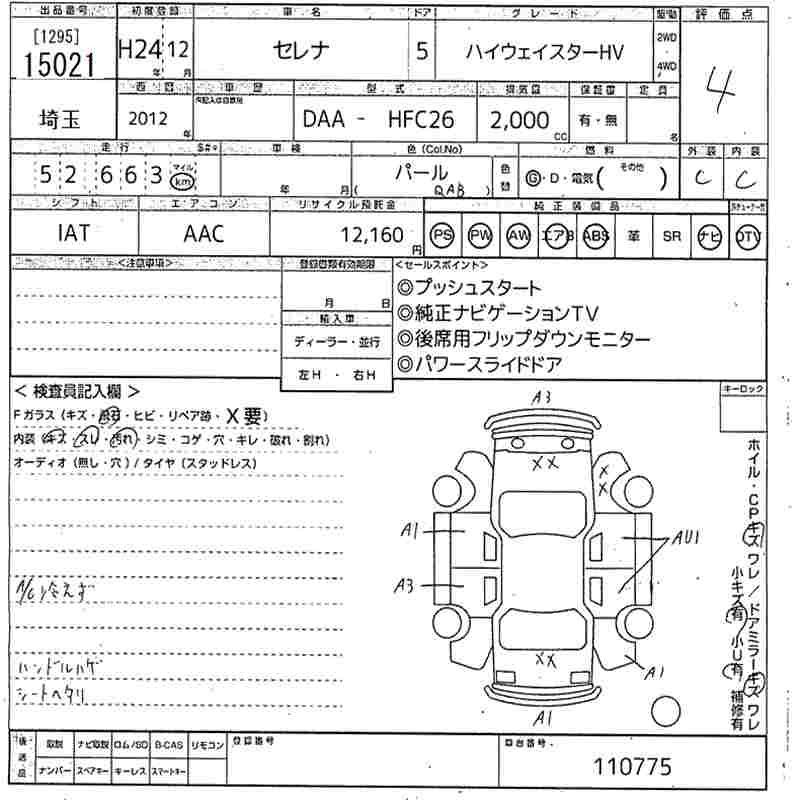 出品番号 初度登録 車名 ドア グレード 駆動 評価点
[1295] 15021 H24年 12月 セレナ 5 ハイウェイスターHV 2WD 4WD 4
西暦 車歴 型式 排気量 保証書 定員
埼玉 2012年 DAA - HFC26 2,000cc 有・無 名
走行 車検 色(Col.No) 燃料 外装 内装
52,663 マイル km 年 月 パール (QAB) 色替 G・D・電気 (その他 ) C C
シフト エアコン リサイクル預託金 純正装備品
IAT AAC 12,160円 PS PW AW エアB ABS 革 SR ナビ DTV
<注意事項> 登録書類有効期限 <セールスポイント>
月 日 ◎プッシュスタート
輸入車 ◎純正ナビゲーションTV
ディーラー・並行 ◎後席用フリップダウンモニター
左H ・ 右H ◎パワースライドドア
< 検査員記入欄 > キーロック
Fガラス (キズ・飛石・ヒビ・リペア跡・X要)
内装 (キズ・スレ・汚れ・シミ・コゲ・穴・キレ・破れ・割れ)
オーディオ (無し・穴) / タイヤ (スタッドレス)
A3
XX
X
X
A1 AU1
A3
A/C冷えず
ハンドルハゲ
シートヘタリ
XX
A1
A1
ホイル・CPキズ ワレ / ドアミラーキズ ワレ
小キズ有 小U有 補修有
後送品 取説 ナビ取説 ロム/SD B-CAS リモコン 登録番号 車台番号
ナンバー スペアキー キーレス スマートキー 110775